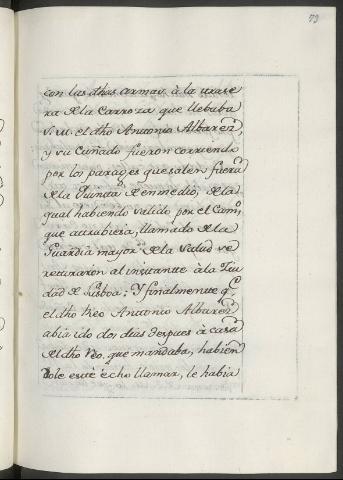 79
con las dhas armas à la trase
ra de la Carroza que llebaba
el dho Antonio Albarez,
y su Cuñado fueron corriendo
por los parages que salen fuera
de la Quinta de enmedio, de la
qual habiendo salido por el Camo
que atrabiesa, llamado de la
Guardia mayor de la Salud se
retiraron al instante à la Ciu
dad de Lisboa; Y finalmente q
el dho Reo Antonio Albarez
abia ido dos dias despues à casa
del dho Reo, que mandaba, habien
dole este echo llamar, le habia